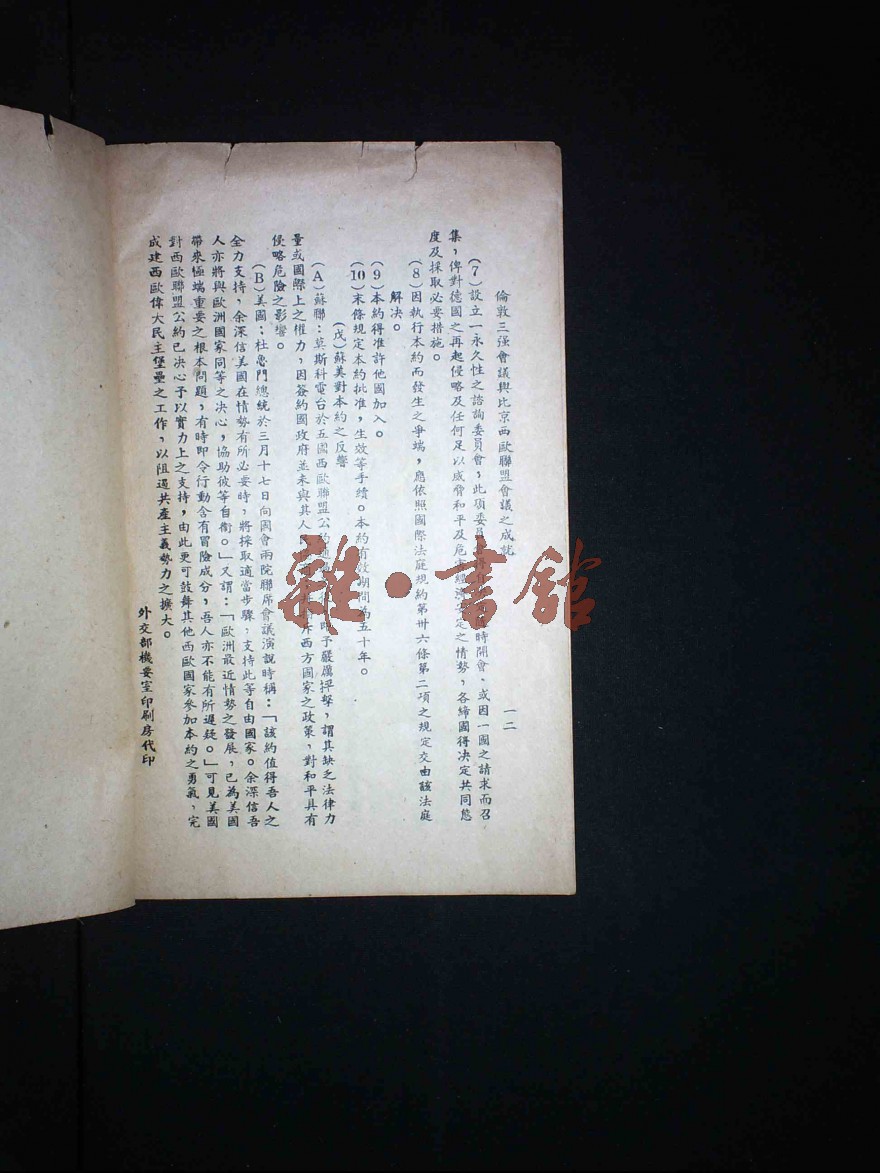 倫敦三强會議與比京西歐聯盟會議之成就
一二
(7)設立一永久性之諮詢委員會,此項委員會得在 時開會,或因一國之請求而召
集,俾對德國之再起侵略及任何足以威脅和平及危害經濟安定之情勢,各締國得决定共同態
度及採取必要措施。
(8)因執行本約而發生之爭端,應依照國際法庭規約第卅六條第二項之規定交由該法庭
解决。
(9)本約得准許他國加入。
(10)末條規定本約批准,生效等手續。本約有效期間為五十年。
(戊)蘇美對本約之反響
(A)蘇聯:莫斯科電台於五國西歐聯盟公約 予嚴厲抨擊,謂其缺乏法律力
量或國際上之權力,因簽約國政府並未與其人 斥西方國家之政策,對和平具有
侵略危險之影響。
(B)美國;杜魯門總統於三月十七日向國會兩院聯席會議演說時稱:「該約值得吾人之
全力支持,余深信美國在情勢有所必要時,將採取適當步驟,支持此等自由國家。余深信吾
人亦將與歐洲國家同等之决心,協助彼等自衛。」又謂:「歐洲最近情勢之發展,已為美國
帶來極端重要之根本問題,有時即令行動含有冒險成分,吾人亦不能有所遲疑。」可見美國
對西歐聯盟公約已决心予以實力上之支持,由此更可鼓舞其他西歐國家參加本約之勇氣,完
成建西歐偉大民主堡壘之工作,以阻遏共產主義勢力之擴大。
外交部機要室印刷房代印
雜·書館